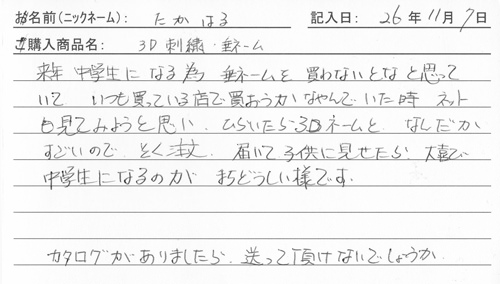 お名前(ニックネーム): たかはる 記入日: 26年11月7日
ご購入商品名: 3D刺繍・垂ネーム
来年 中学生に なる為 垂ネームを 買わないとなと思って
いて いつも買っている店で買おうか なやんでいた時 ネット
も見てみようと思い、ひらいたら 3Dネームと、なんだか
すごいので、とく注文 届いて子供に見せたら 大喜び
中学生になるのが まちどうしい様です。
カタログがありましたら、送って頂けないでしょうか